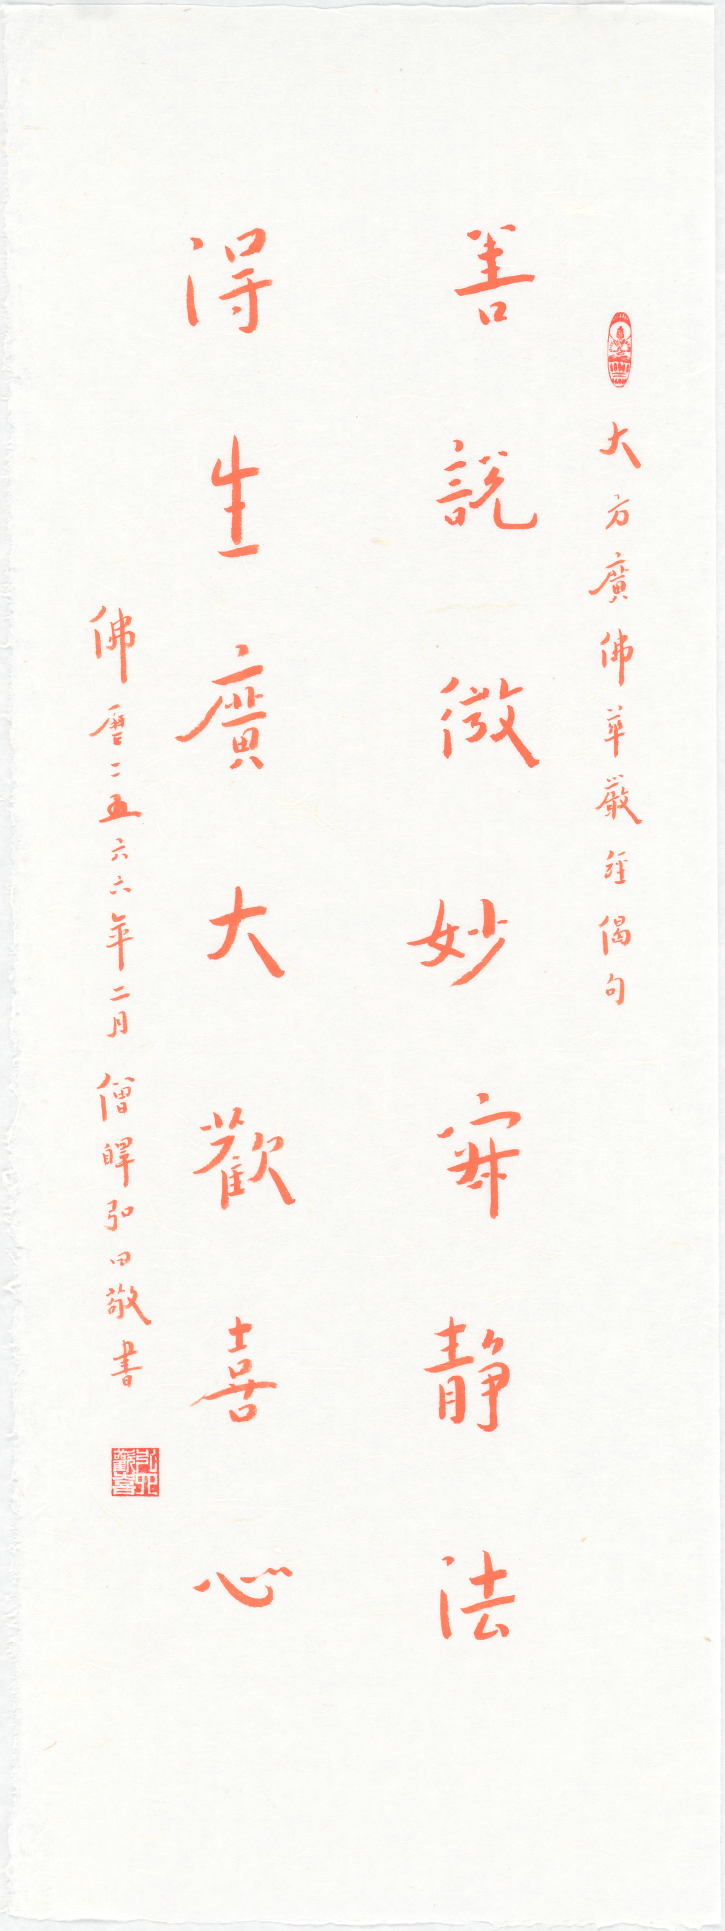 大方廣佛華嚴經偈句
善說微妙寂靜法
得生廣大歡喜心
佛曆二五六六年二月 僧 弘 敬書